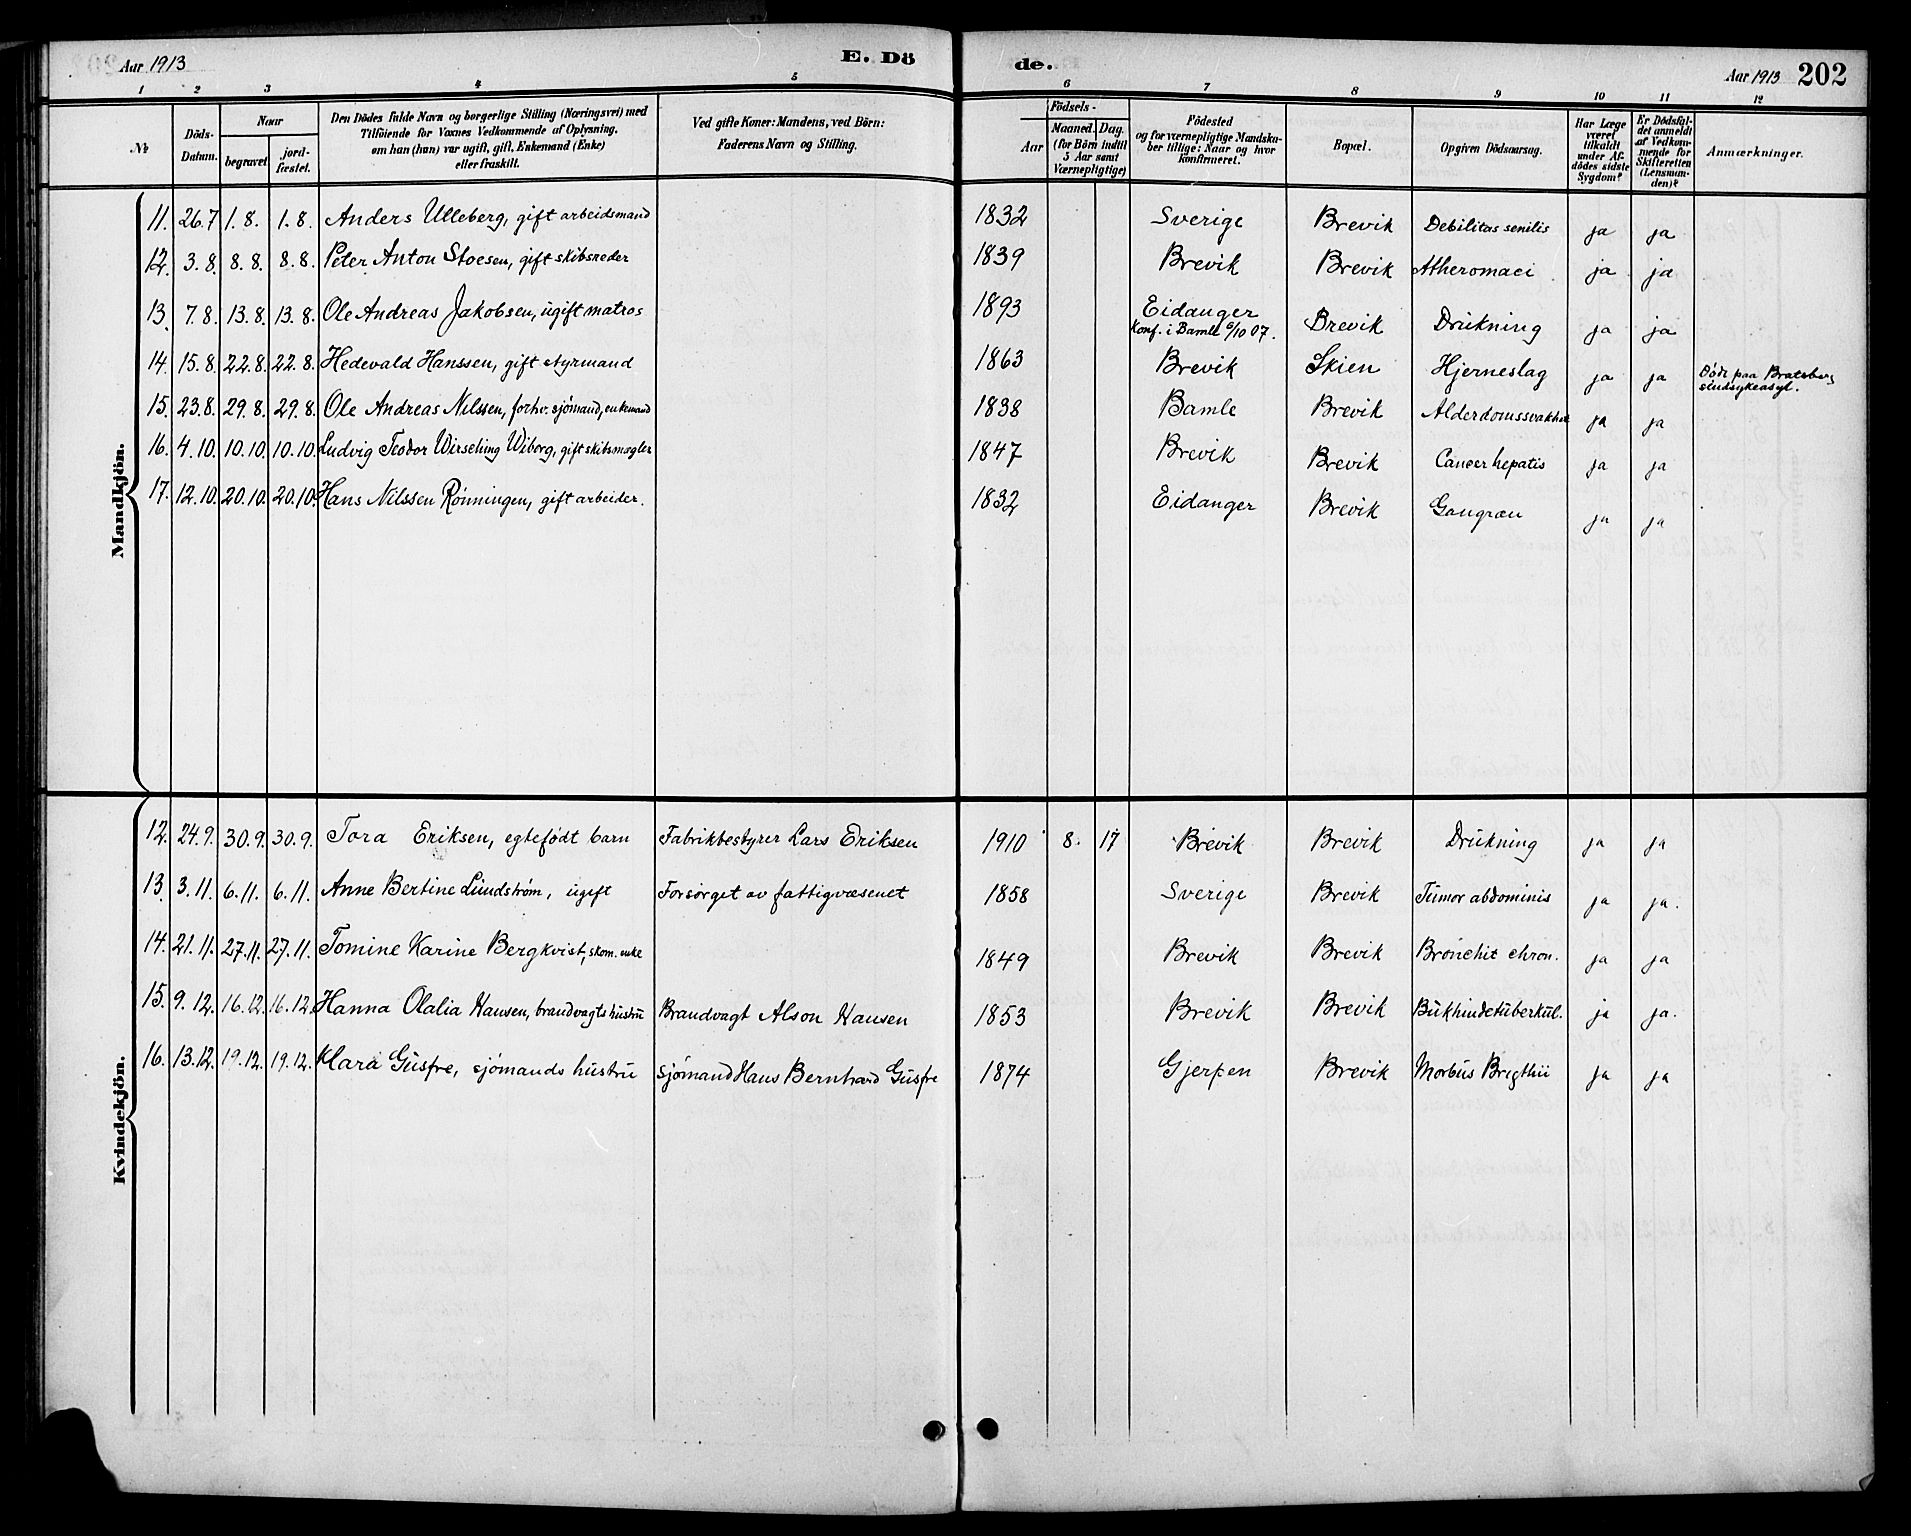 Aar 1913 E. Dö de. Aar 1913 202
1 2 3 4 5 6 7 8 9 10 11 12
№ Döds-Datum. Naar begravet jordfæstet. Den Dödes fulde Navn og borgerlige Stilling (Næringsvei) med Tilföiende for Voxnes Vedkommende af Oplysning, om han (hun) var ugift, gift, Enkemand (Enke) eller fraskilt. Ved gifte Koner: Mandens, ved Börn: Faderens Navn og Stilling. Födsels- Aar Maaned. Dag. (for Börn indtil 5 Aar samt Værnepligtige) Födested og for værnepligtige Mandskaber tillige: Naar og hvor konfirmeret. Bopæl. Opgiven Dödsaarsag. Har Læge været tilkaldt under Afdödes sidste Sygdom? Er Dödsfaldet anmeldt af Vedkommende for Skifteretten (Lensmanden)? Anmærkninger.
Mandkjön.
11. 26.7 1.8. 1.8. Anders Ulleberg, gift arbeidsmand 1832 Sverige Brevik Debilitas senilis ja ja
12. 3.8. 8.8. 8.8. Peter Anton Stoesen, gift skibsreder 1839 Brevik Brevik Atheromaci ja ja
13. 7.8. 13.8. 13.8. Ole Andreas Jakobsen, ugift matros 1893 Eidanger Brevik Drukning ja ja
Konf. i Bamle 6/10 07.
14. 15.8. 22.8. 22.8. Hedevald Hanssen, gift styrmand 1863 Brevik Skien Hjerneslag ja ja Döde paa Bratsberg
sindsykeasyl.
15. 23.8. 29.8. 29.8. Ole Andreas Nilssen, forhv. sjömand, enkemand 1838 Bamle Brevik Alderdomssvakhet ja ja
16. 4.10. 10.10. 10.10. Ludvig Teodor Wirsching Wiborg, gift skibsmægler 1847 Brevik Brevik Cancer hepatis ja ja
17. 12.10. 20.10. 20.10. Hans Nilssen Rönningen, gift arbeider. 1832 Eidanger Brevik Gangræn ja ja
Kvindekjön.
12. 24.9. 30.9. 30.9. Tora Eriksen, egtefödt barn Fabrikbestyrer Lars Eriksen 1910 8. 17 Brevik Brevik Drukning ja ja
13. 3.11. 6.11. 6.11. Anne Bertine Lundström, ugift Forsörget av fattigvæsenet 1858 Sverige Brevik Tumor abdominis ja ja.
14. 21.11. 27.11. 27.11. Tomine Karine Bergkvist, skom. enke 1849 Brevik Brevik Bronchit chron. ja ja
15. 9.12. 16.12. 16.12. Hanna Olalia Hansen, brandvagts hustru Brandvagt Alson Hansen 1853 Brevik Brevik Bukhindetuberkul. ja ja.
16. 13.12. 19.12. 19.12. Klara Gusfre, sjömands hustru sjömand Hans Bernhard Gusfre 1874 Gjerpen Brevik Morbus Brigthii ja ja